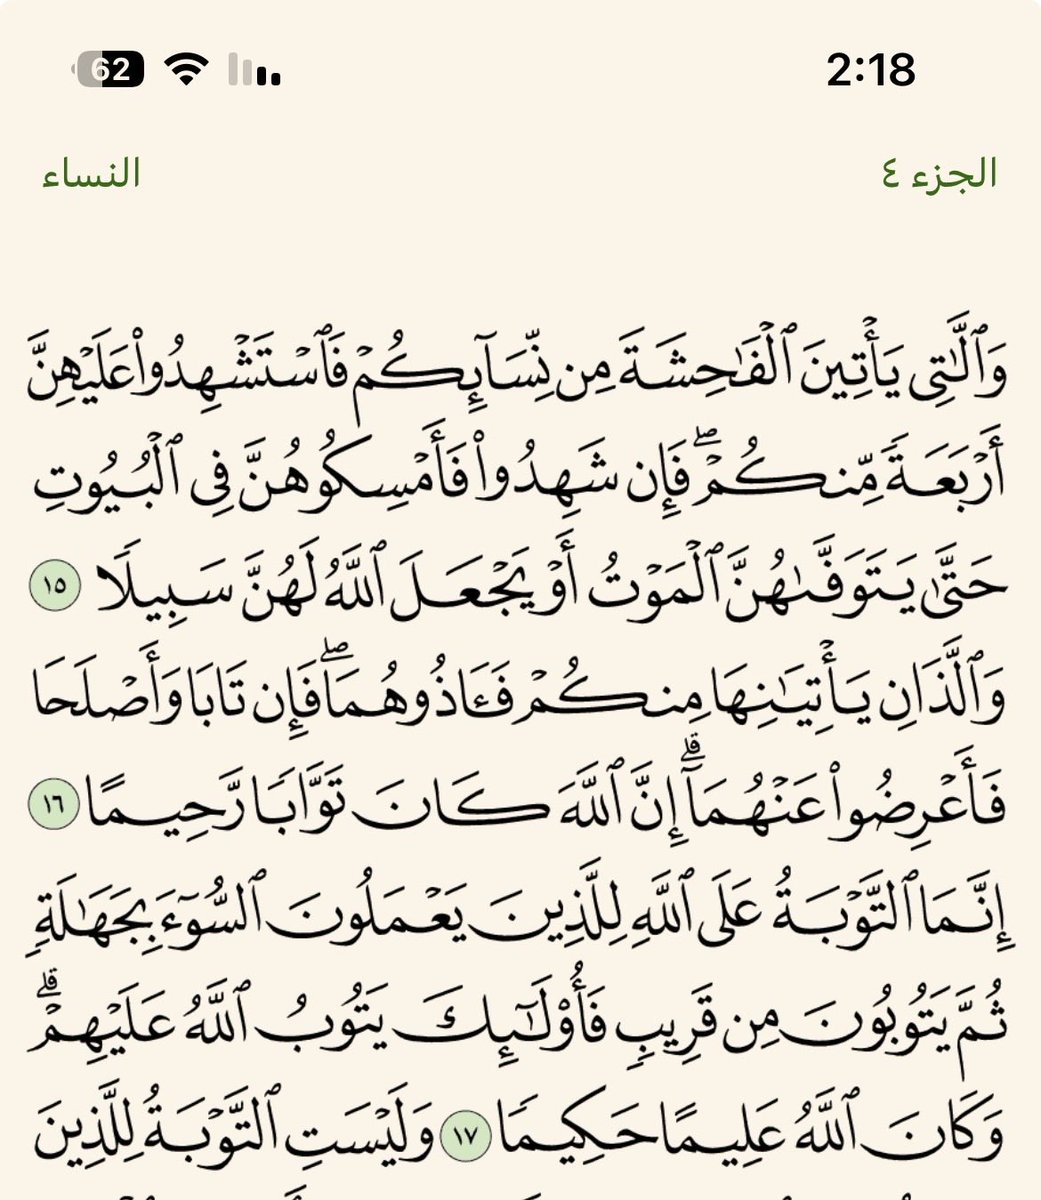 2:18 62
الجزء ٤ النساء
وَٱلَّـٰتِى يَأۡتِينَ ٱلۡفَـٰحِشَةَ مِن نِّسَآئِكُمۡ فَٱسۡتَشۡهِدُواْ عَلَيۡهِنَّ
أَرۡبَعَةً مِّنكُمۡۖ فَإِن شَهِدُواْ فَأَمۡسِكُوهُنَّ فِى ٱلۡبُيُوتِ
حَتَّىٰ يَتَوَفَّىٰهُنَّ ٱلۡمَوۡتُ أَوۡ يَجۡعَلَ ٱللَّهُ لَهُنَّ سَبِيلًا ١٥
وَٱلَّذَانِ يَأۡتِيَـٰنِهَا مِنكُمۡ فَـَٔاذُوهُمَاۖ فَإِن تَابَا وَأَصۡلَحَا
فَأَعۡرِضُواْ عَنۡهُمَآۗ إِنَّ ٱللَّهَ كَانَ تَوَّابًا رَّحِيمًا ١٦
إِنَّمَا ٱلتَّوۡبَةُ عَلَى ٱللَّهِ لِلَّذِينَ يَعۡمَلُونَ ٱلسُّوٓءَ بِجَهَـٰلَةٍ
ثُمَّ يَتُوبُونَ مِن قَرِيبٍ فَأُوْلَـٰٓئِكَ يَتُوبُ ٱللَّهُ عَلَيۡهِمۡۗ
وَكَانَ ٱللَّهُ عَلِيمًا حَكِيمًا ١٧ وَلَيۡسَتِ ٱلتَّوۡبَةُ لِلَّذِينَ